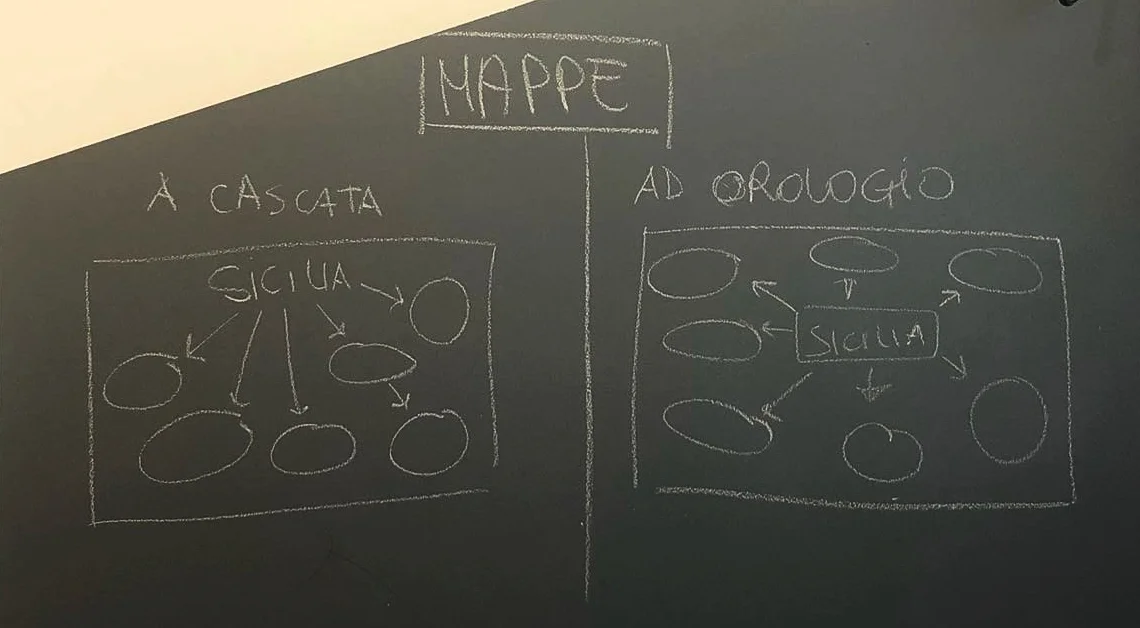 MAPPE
A CASCATA
SICILIA
AD OROLOGIO
SICILIA